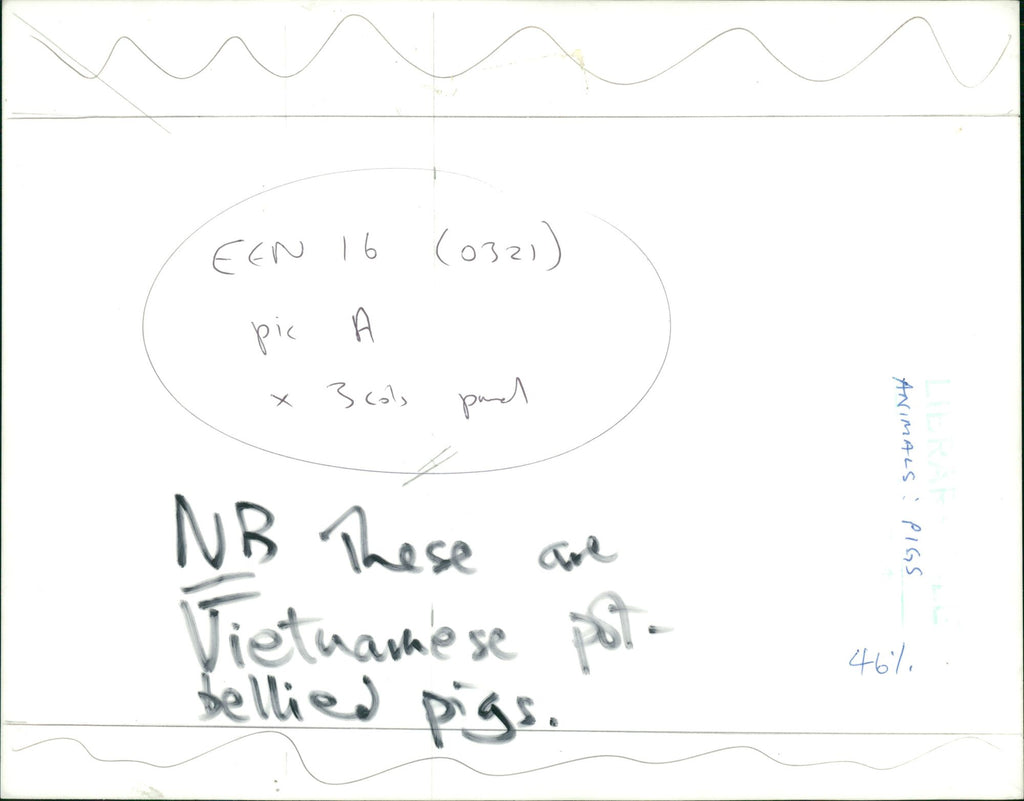 EEN 16 (0321)
pic A
x 3 cols panel
NB These are
Vietnamese pot-
bellied pigs.
ANIMALS: PIGS
46%